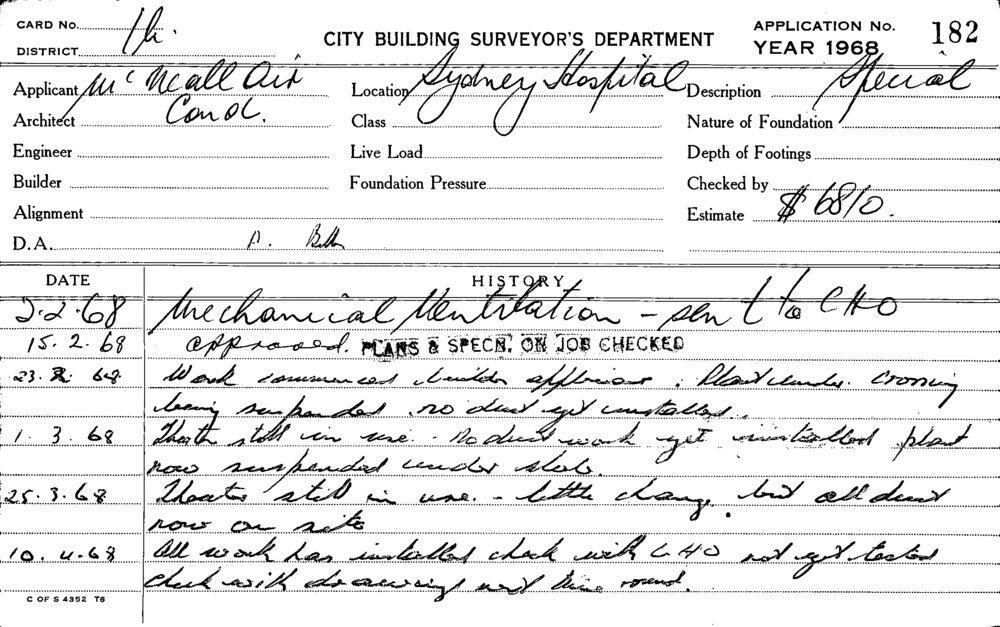 CARD No.
DISTRICT
CITY BUILDING SURVEYOR'S DEPARTMENT
APPLICATION No. 182
YEAR 1968
Applicant Mc Neall Air Location Sydney Hospital Description Special
Architect Cond. Class Nature of Foundation
Engineer Live Load Depth of Footings
Builder Foundation Pressure Checked by
Alignment Estimate $ 6810.
D.A.
DATE HISTORY
2.2.68 Mechanical Ventilation - sent to CHO
15.2.68 approved. PLANS & SPECN. ON JOB CHECKED
23.2.68 Work commenced under
being suspended no duct yet installed.
1.3.68 Theatre still in use. No duct work yet installed plant
now suspended under slab.
25.3.68 Theatre still in use. - little change, but all duct
now on site
10.4.68 All work has installed check with CHO not yet tested
check with drawing next time round.
C OF S 4352 T6